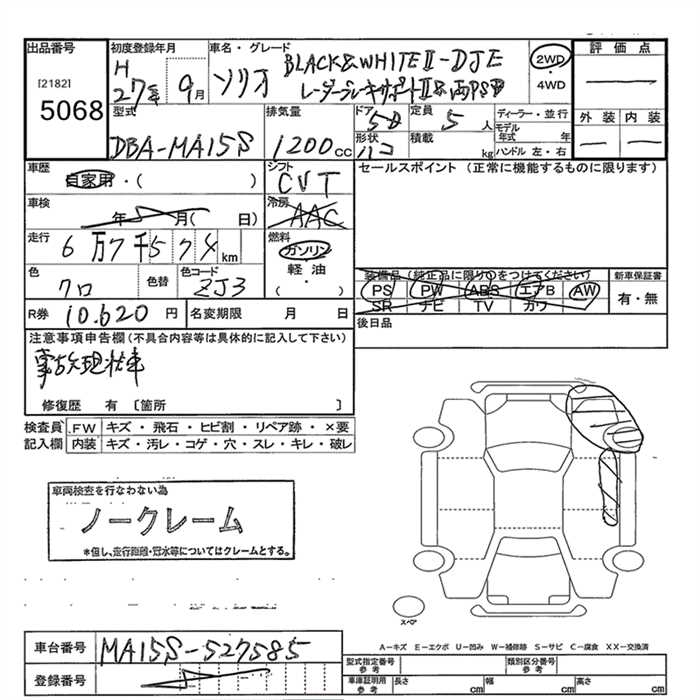 出品番号
[2182]
5068
初度登録年月
H
27年 9月
車名・グレード
ソリオ
BLACK&WHITEⅡ-DJE
レーダーブレーキサポートⅡ&両PSD
2WD
・
4WD
評価点
型式
DBA-MA15S
排気量
1200cc
ドア
5D
定員
5人
形状
ハコ
積載
kg
ディーラー・並行
モデル年式 年
ハンドル 左・右
外装 内装
車歴
自家用・( )
シフト
CVT
セールスポイント (正常に機能するものに限ります)
車検
年 月( 日)
冷房
AAC
走行
6万7千57 km
燃料
ガソリン
軽油
・
( )
色
クロ
色替
色コード
ZJ3
装備品(純正品に限り○をつけてください)
PS PW ABS エアB AW
SR ナビ TV カワ
新車保証書
有・無
R券 10,620円
名変期限 月 日
後日品
注意事項申告欄(不具合内容等は具体的に記入して下さい)
事故現状車
修復歴 有 〔箇所 〕
検査員 FW キズ・飛石・ヒビ割・リペア跡・×要
記入欄 内装 キズ・汚レ・コゲ・穴・スレ・キレ・破レ
車両検査を行なわない為
ノークレーム
*但し、走行距離・冠水等についてはクレームとする。
スペア
A-キズ E-エクボ U-凹み W-補修跡 S-サビ C-腐食 XX-交換済
車台番号 MA15S-527585
登録番号
型式指定番号
参考
類別区分番号
参考
車庫証明用
参考
長さ cm 幅 cm 高さ cm